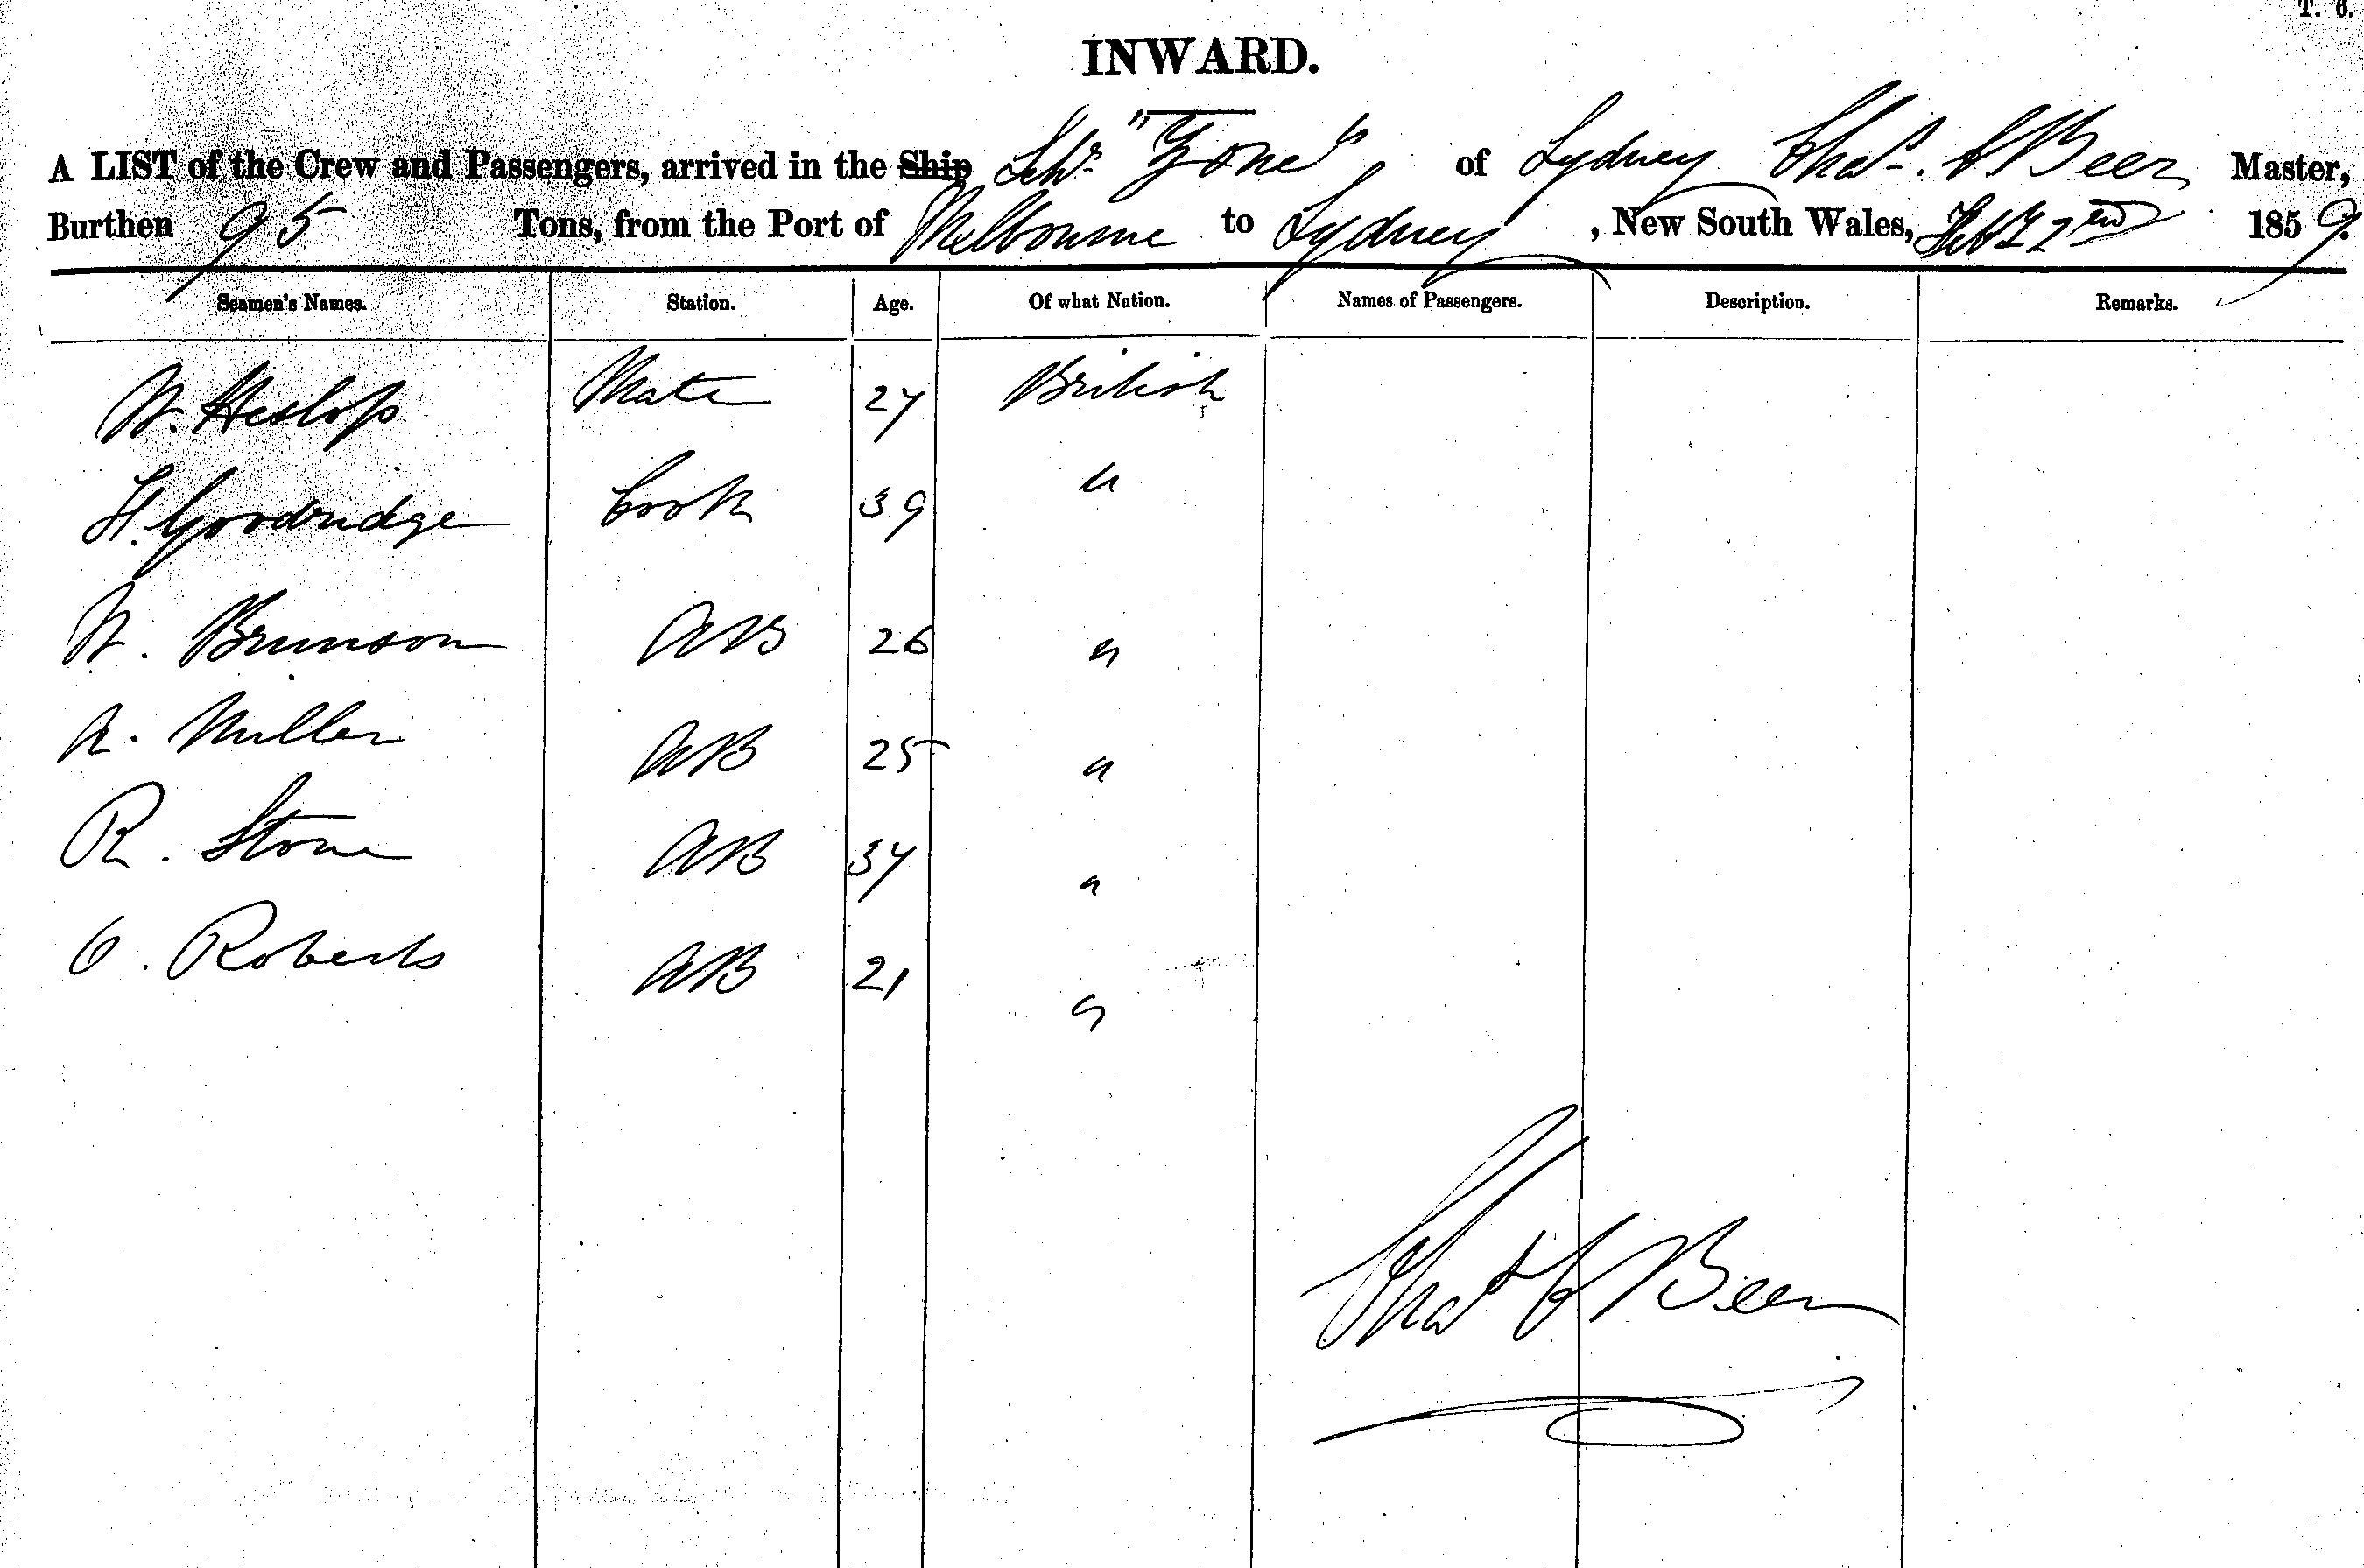 T. 6.
INWARD.
A LIST of the Crew and Passengers, arrived in the Ship Schr "Zone" of Sydney Chas. Beer Master,
Burthen 95 Tons, from the Port of Melbourne to Sydney, New South Wales, Feby 2nd 1859.
Seamen's Names. Station. Age. Of what Nation. Names of Passengers. Description. Remarks.
W. Heslop Mate 27 British
H. Goodridge Cook 39 "
W. Brunson AB 26 "
A. Miller AB 25 "
R. Stone AB 37 "
O. Roberts AB 21 "
Chas Beer